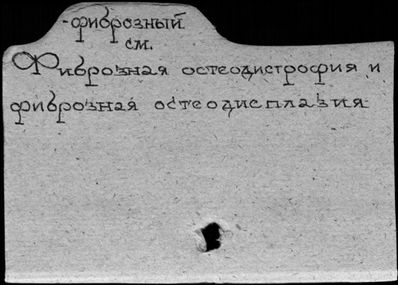 -фиброзный
см.
Фиброзная остеодистрофия и
фиброзная остеодисплазия